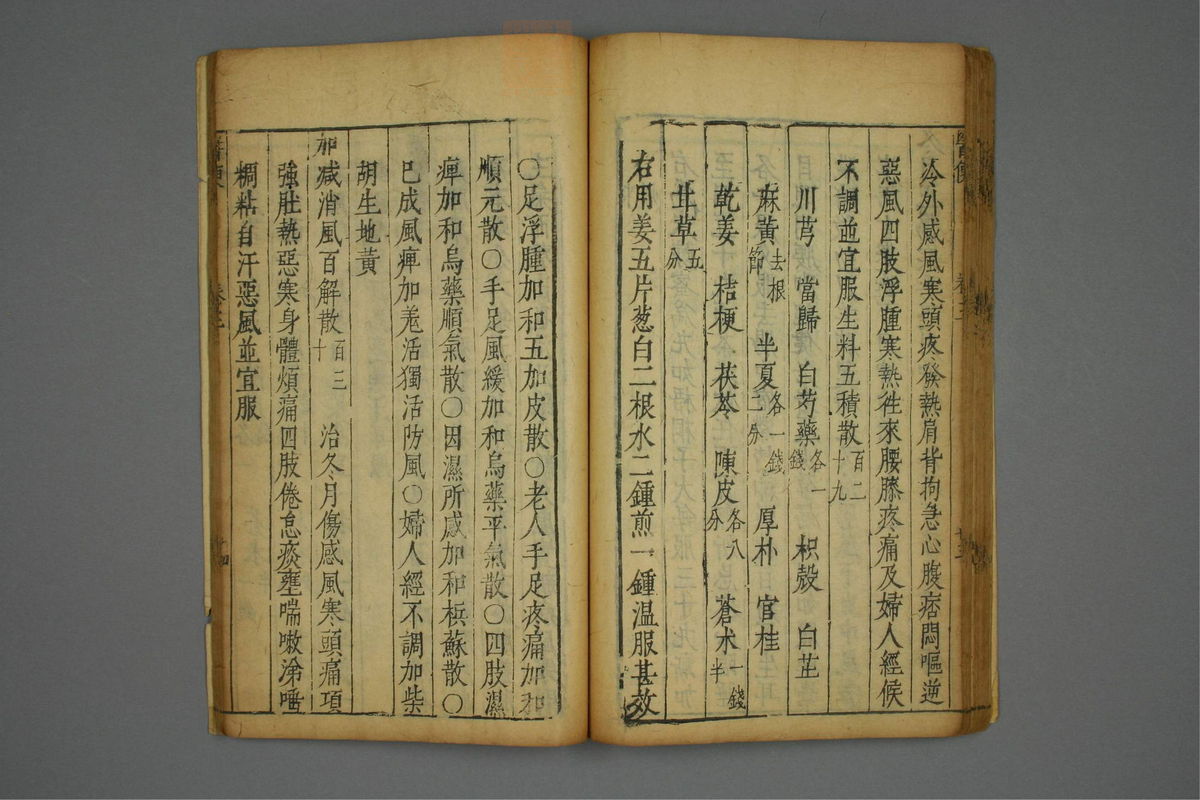 冷外感風寒頭疼發熱肩背拘急心腹痞悶嘔逆
惡風四肢浮腫寒熱徃來腰膝疼痛及婦人經候
不調並宜服生料五積散百二十九
川芎 當歸 白芍藥各一錢 枳殼 白芷
麻黃去根節 半夏各一錢二分 厚朴 官桂
乾姜 桔梗 茯苓 陳皮各八分 蒼术一錢半
甘草五分
右用姜五片葱白二根水二鍾煎一鍾温服甚效
〇足浮腫加和五加皮散〇老人手足疼痛加和
順元散〇手足風緩加和烏藥平氣散〇四肢濕
痺加和烏藥順氣散〇因濕所感加和檳蘇散〇
已成風痺加羗活獨活防風〇婦人經不調加柴
胡生地黃
加减消風百解散百三十 治冬月傷感風寒頭痛項
強壯熱惡寒身體煩痛四肢倦怠痰壅喘嗽涕唾
稠粘自汗惡風並宜服
醫便
卷之三
十四